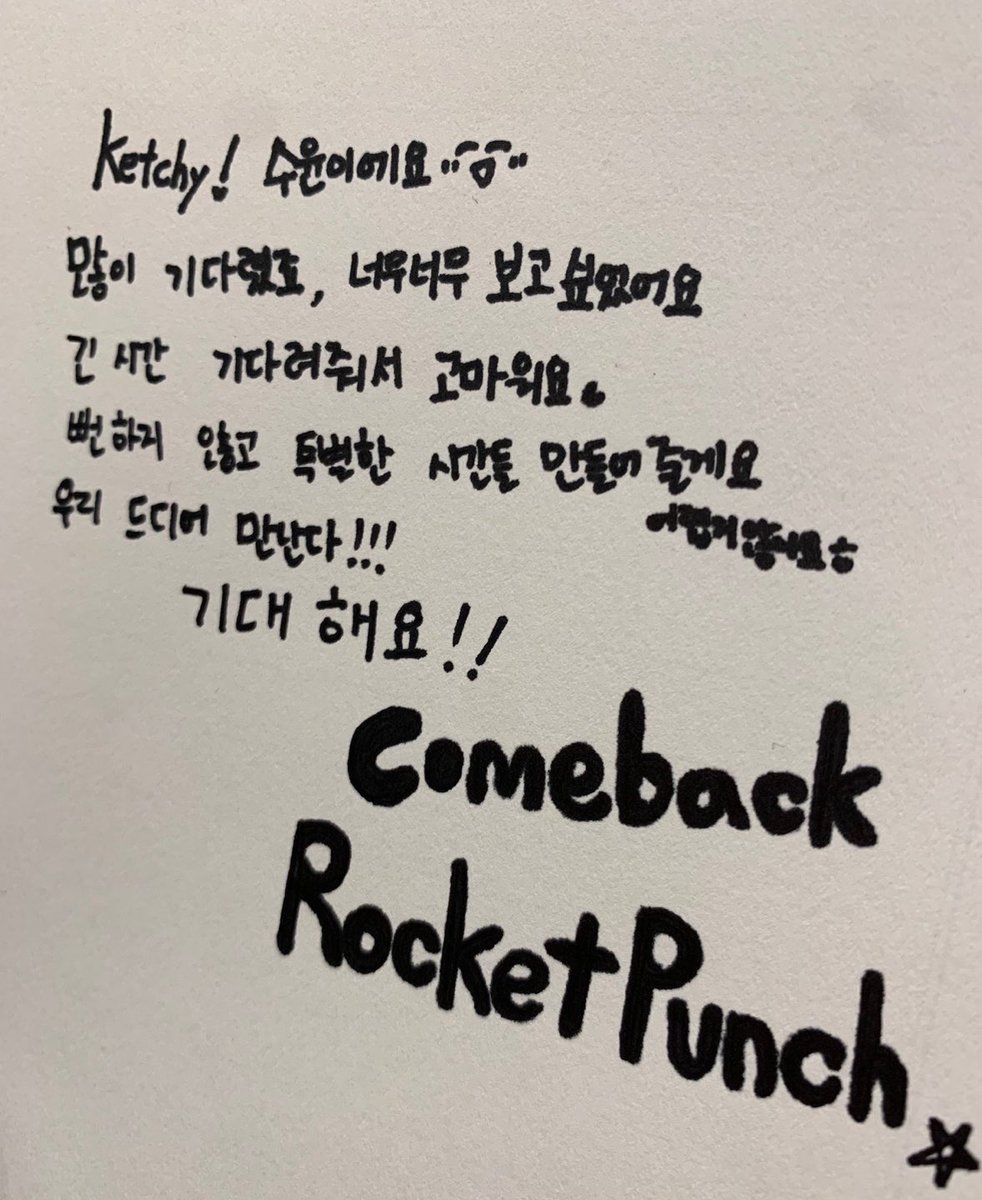 Ketchy! 수윤이에요
많이 기다렸죠, 너무너무 보고싶었어요
긴 시간 기다려줘서 고마워요.
뻔하지 않고 특별한 시간들 만들어 줄게요
어렵지않아요ㅎ
우리 드디어 만난다!!!
기대 해요!!
Comeback
RocketPunch